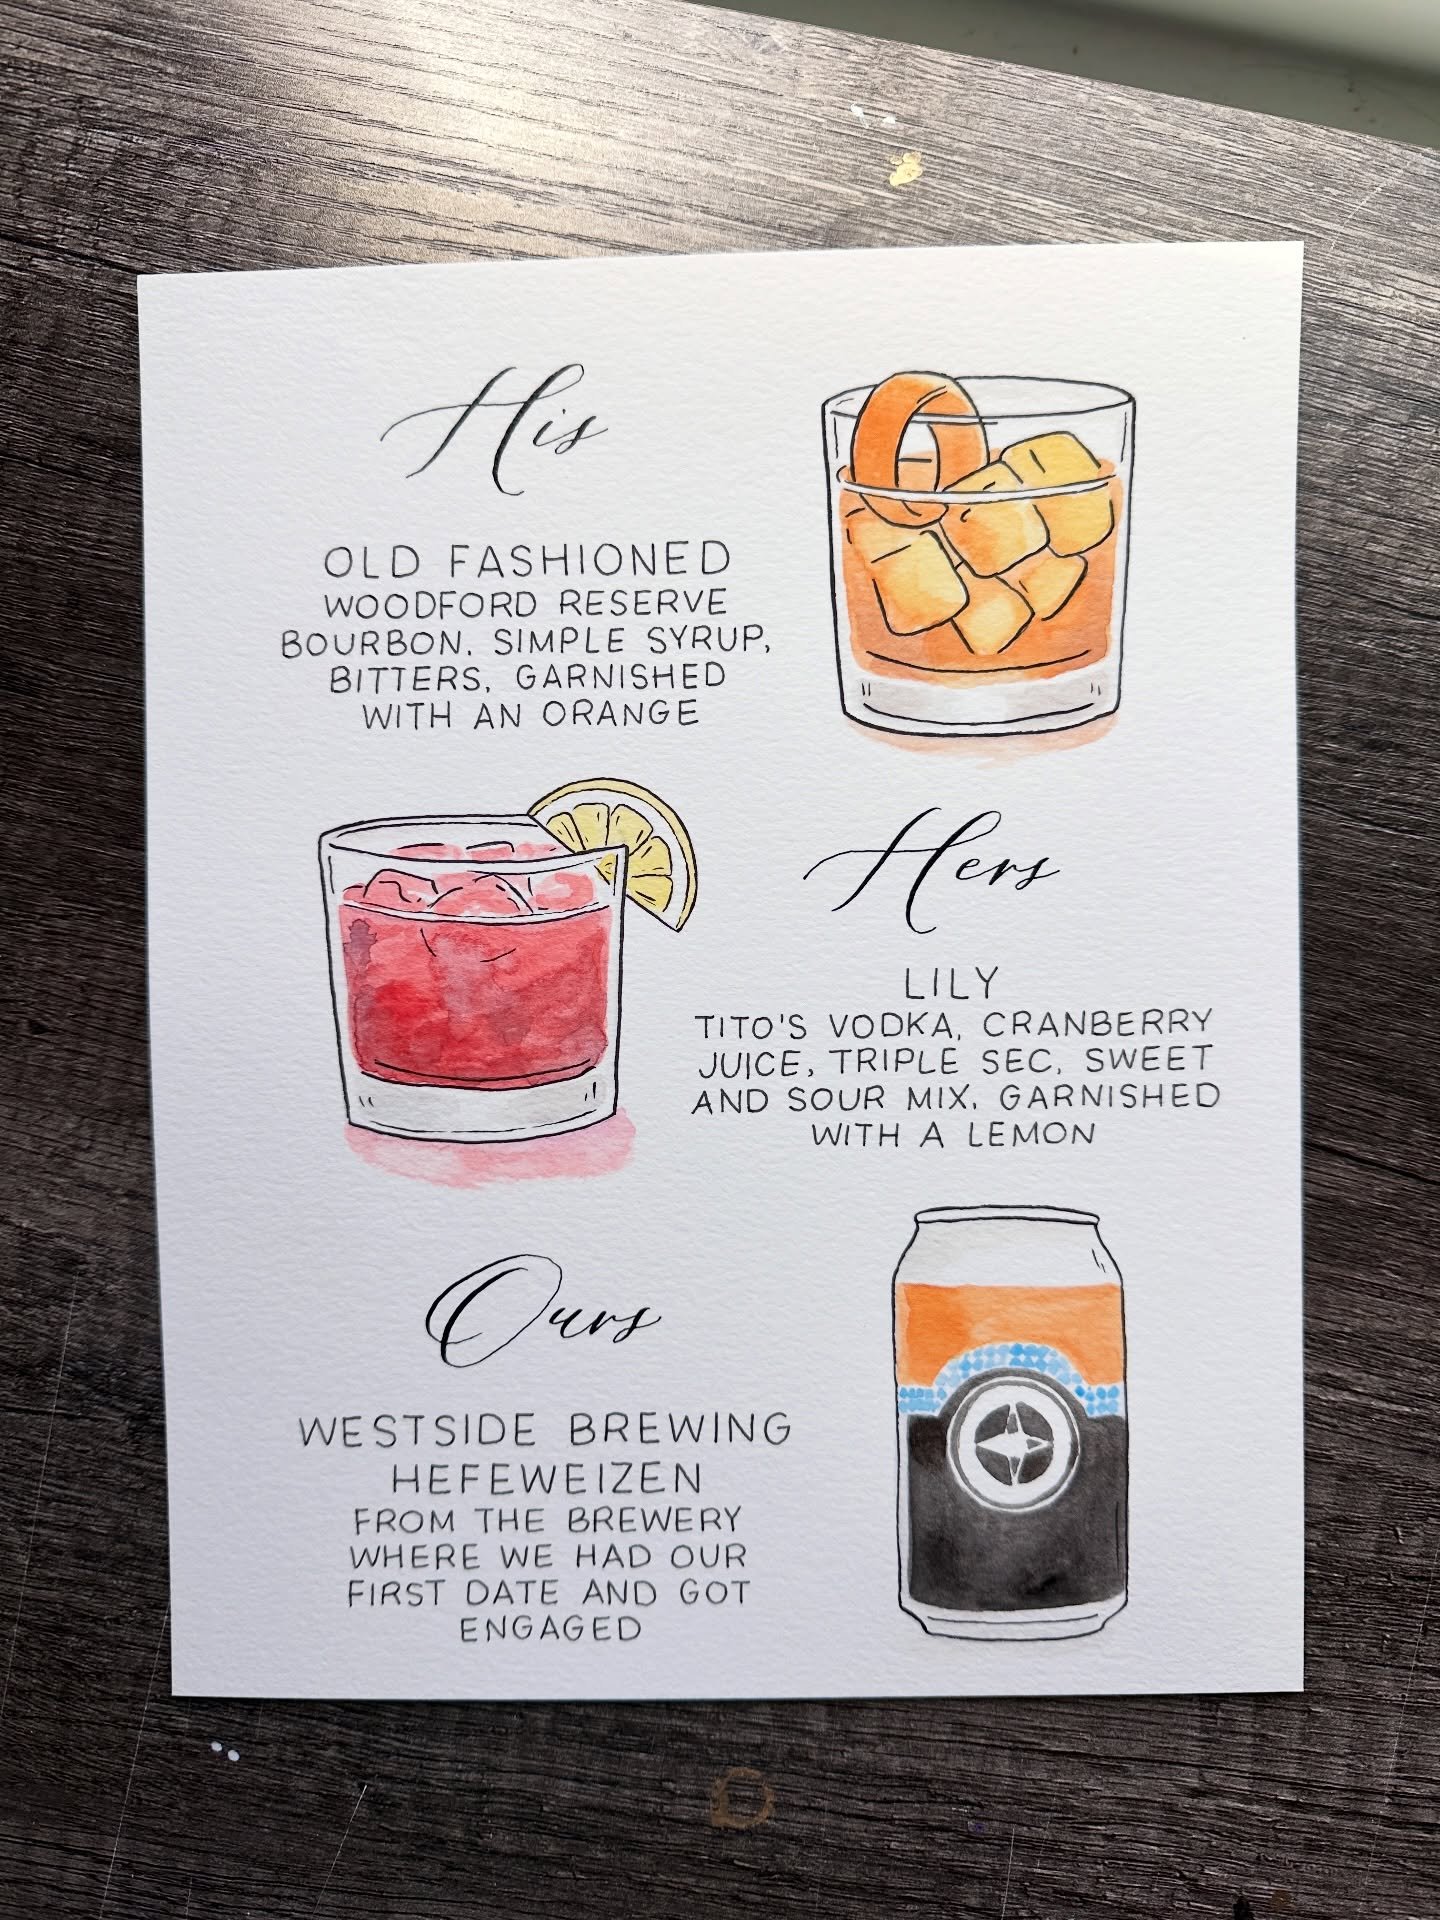 His
OLD FASHIONED
WOODFORD RESERVE
BOURBON, SIMPLE SYRUP,
BITTERS, GARNISHED
WITH AN ORANGE
Hers
LILY
TITO'S VODKA, CRANBERRY
JUICE, TRIPLE SEC, SWEET
AND SOUR MIX, GARNISHED
WITH A LEMON
Ours
WESTSIDE BREWING
HEFEWEIZEN
FROM THE BREWERY
WHERE WE HAD OUR
FIRST DATE AND GOT
ENGAGED